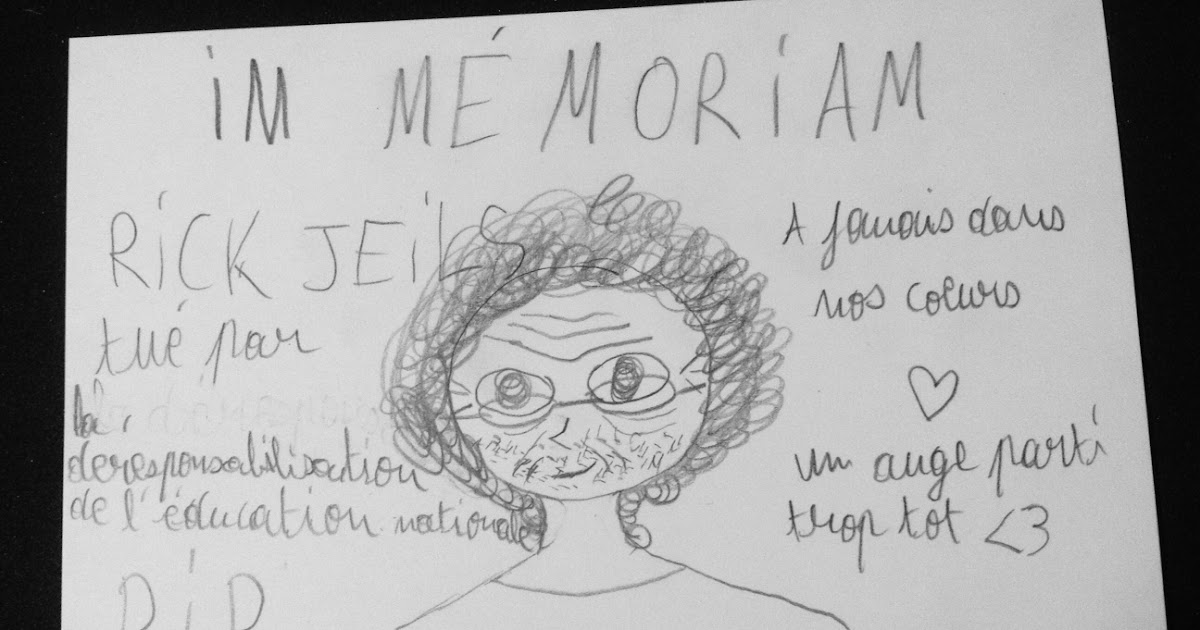 iM MÉMORiAM
RiCK JEiLS
tué par
la
deresponsabilisation
de l'éducation nationale
RiP
A jamais dans
nos coeurs
♡
un ange parti
trop tot <3